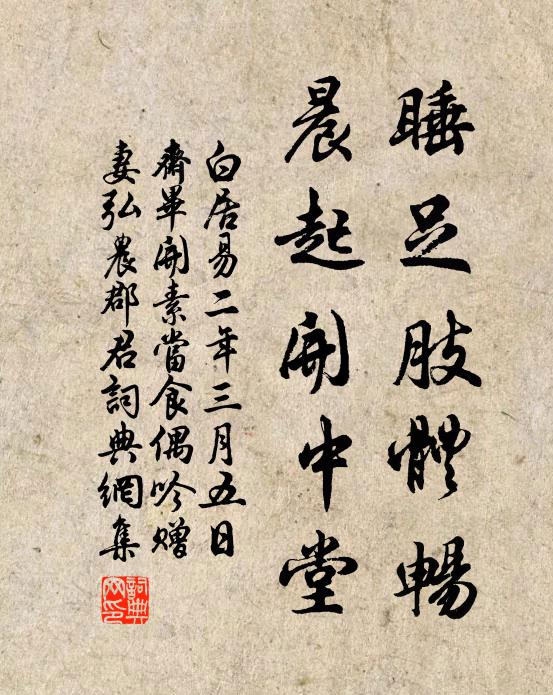 睡足肢體暢
晨起開中堂
白居易二年三月五日
齋畢開素當食偶吟贈
妻弘農郡君詞典網集
詞典網印